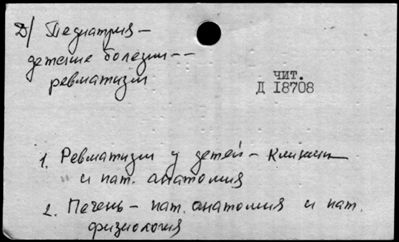 Д/ Педиатрия –
детские болезни --
ревматизм
чит.
Д 18708
1. Ревматизм у детей – клиника
и пат. анатомия
2. Печень – пат. анатомия и пат.
физиология